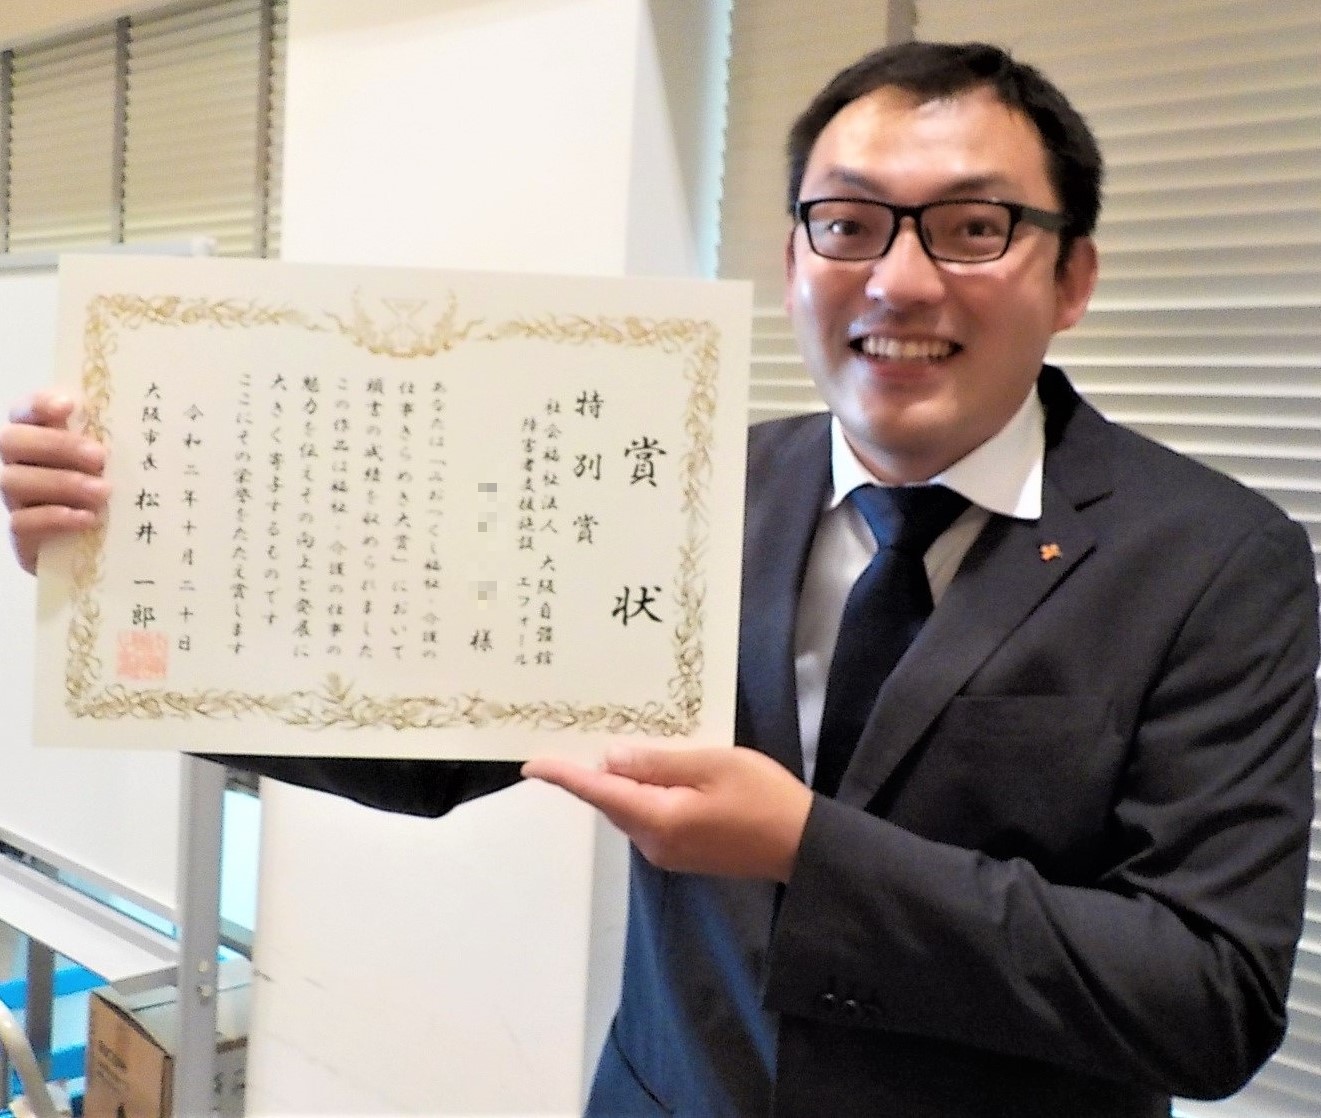 賞状
特別賞
社会福祉法人 大阪自彊館
障害者支援施設 エフォール
様
あなたは「みおつくし福祉・介護の
仕事きらめき大賞」において
頭書の成績を収められました
この作品は福祉・介護の仕事の
魅力を伝えその向上と発展に
大きく寄与するものです
ここにその栄誉をたたえ賞します
令和二年十月二十日
大阪市長 松井 一郎